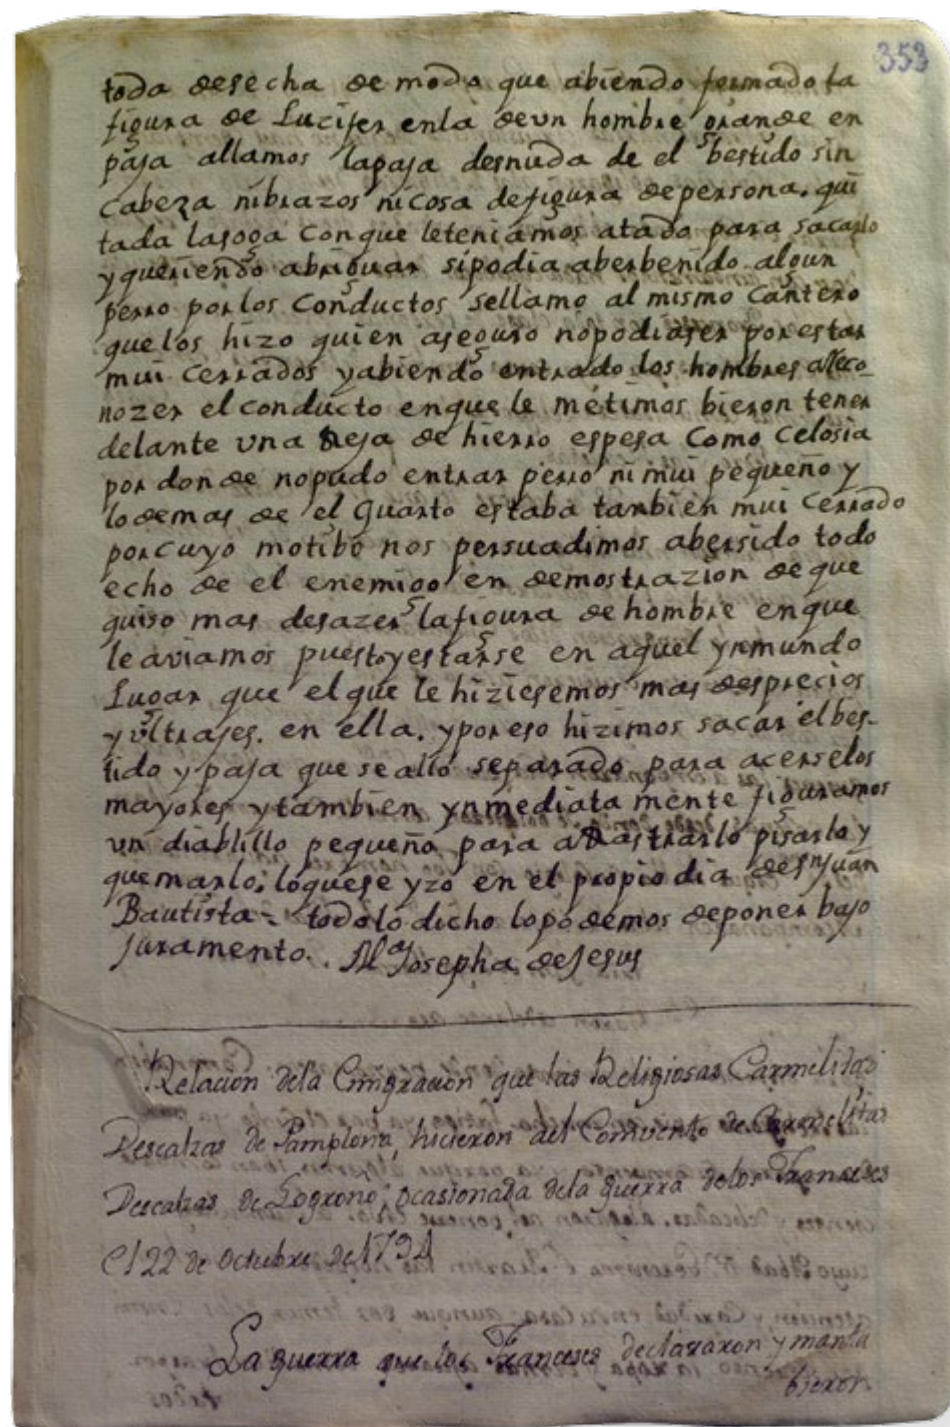 353
toda desecha de modo que abiendo formado la
figura de Lucifer enla deun hombre grande en
paja allamos lapaja desnuda de el bestido sin
cabeza nibrazos nicosa defigura depersona. qui
tada lasoga conque leteniamos atado para sacarlo
yqueriendo abriguar sipodia aberbenido algun
perro porlos conductos sellamo al mismo cantero
quelos hizo quien aseguro nopodiaser porestar
mui cerrados yabiendo entrado dos hombres a reco
nozer el conducto enque le metimos bieron tener
delante una Reja de hierro espesa como celosia
por donde nopudo entrar perro ni mui pequeño y
lodemas de el quarto estaba tanbien mui cerrado
porcuyo motibo nos persuadimos abersido todo
echo de el enemigo en demostrazion de que
quiso mas desazer lafigura de hombre enque
le aviamos puestoyestarse en aquel ynmundo
Lugar que elque le hiziesemos mas desprecios
yultrajes. en ella. yporeso hizimos sacar elbes-
tido y paja que seallo separado para acerselos
mayores ytambien ynmediata mente figuramos
un diablillo pequeño para aRastrarlo pisarlo y
quemarlo. loquese yzo en el propio dia deSn Juan
Bautista = todolo dicho lopodemos deponer bajo
Juramento. Ma Josepha de Jesus
Relacion dela Emigracion que las Religiosas Carmelitas
Descalzas de Pamplona, hicieron del Convento de Carmelitas
Descalzas de Logroño, ocasionada dela guerra delos Franceses
el 22 de Octubre de 1794
La guerra que los Franceses declararon y mantu
bieron